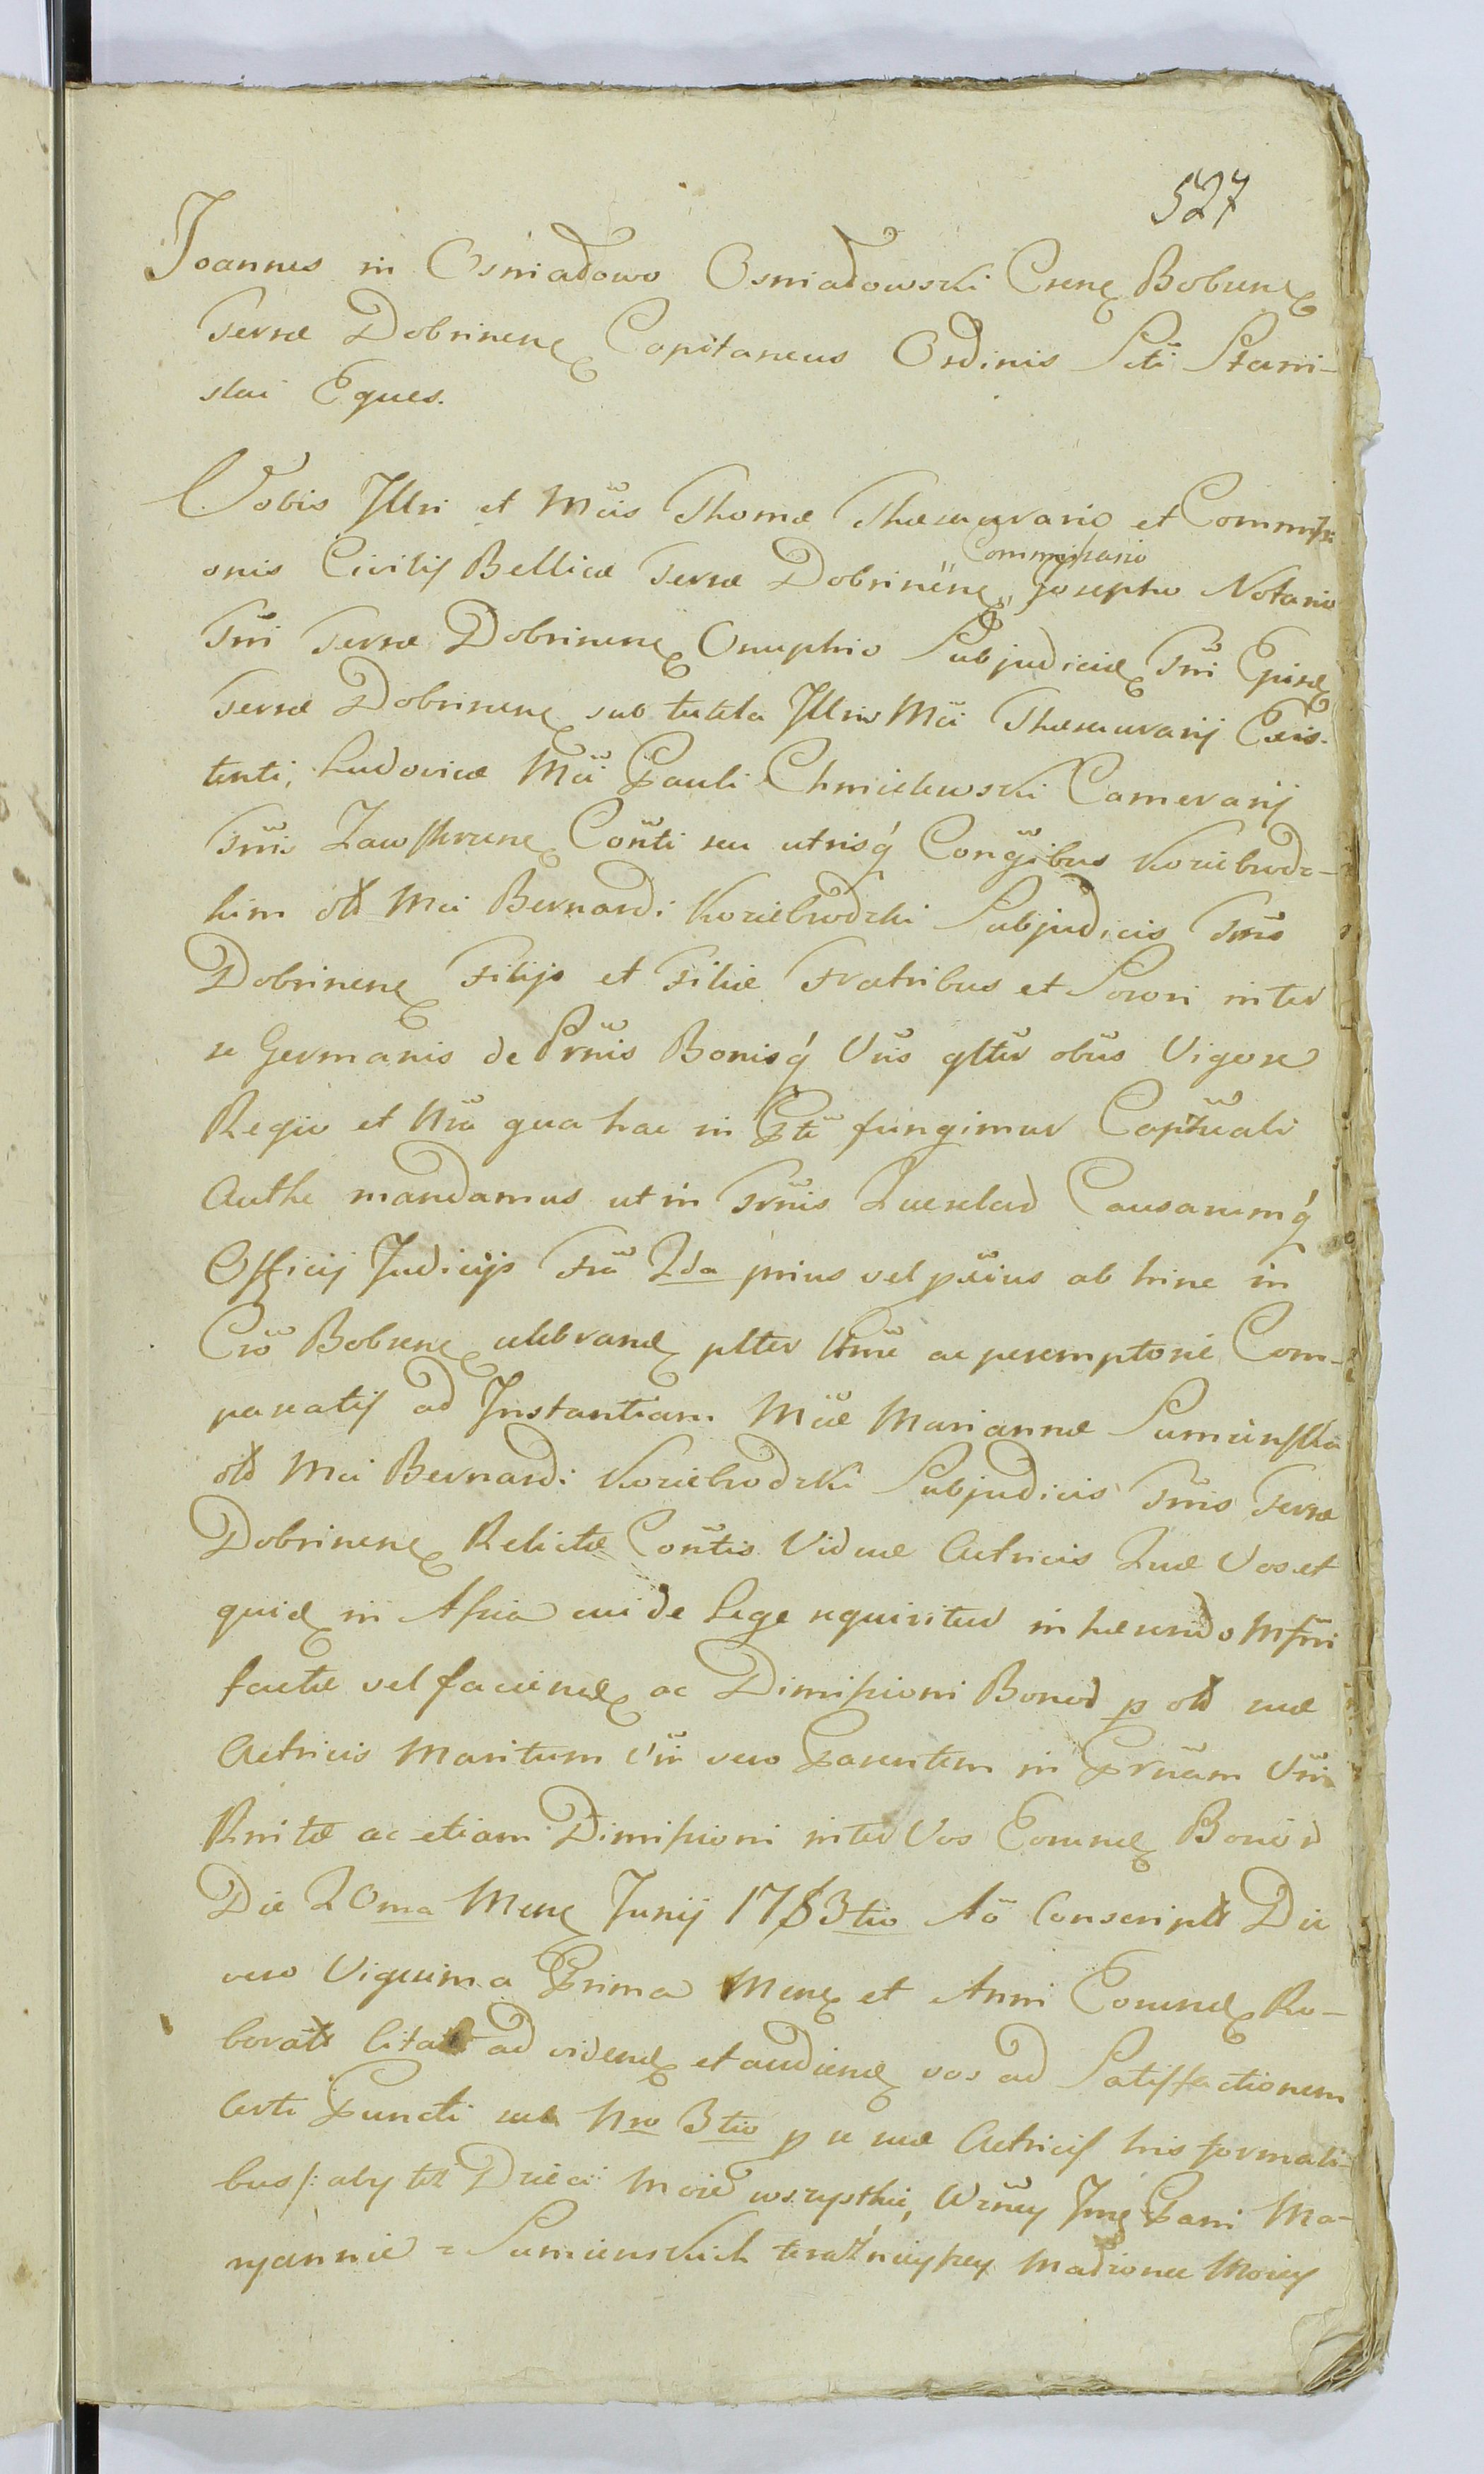 527
Joannes in Osniadowo Osniadowski Crenẽ Bobrunẽ
Terræ Dobrinenẽ Capitaneus Ordinis Scti Stani-
slai Eques.
Vobis Jllri et Mcis Thomæ Thesaurario et Commissi
onis Civilis Bellicæ Terræ Dobrinenẽ Commissario Josepho Notario
Tri Terræ Dobrinenẽ Onuphrio Subjudicid Tri
Terræ Dobrinenẽ sub tutela Jllris Mci Thesaurarij Exis-
tenti, Ludovicæ Mci Pauli Chmielewski Camerarij
Tris Zawskrzune Conti seu utrisq Congibus Koziebrodz-
kim olt Mci Bernardi Koziebrodzki Subjudicis Tris
Dobrinenẽ Filijs et Filiæ Fratribus et Sorori inter
se Germanis de Prnis Bonisq Vris gltèr obus Vigore
Regia et Nra qua hac in Pte fungimur Captuali
Authe mandamus ut in Trnis Querelar Causarumq
Officij Judicijs Fra 2da prius vel pxius ab hinc in
Cro Bobrenẽ celebrand plter ttme ac peremptorie Com-
pareatis ad Jnstantiam Mcæ Mariannæ Sumińska
olt Mci Bernardi Koziebrodzki Subjudicis Tris Terræ
Dobrinenẽ Relictæ Contis Viduæ Actricis Quæ Vos et
quid in Assia cui de Lege requiritur inhærendo Mfri
factæ vel faciend ac Dimissioni Bonor p olt suæ
Actricis Maritum Vrr vero Parentem in Prnam Vri
Knitæ ac etiam Dimissioni inter Vos Eorund Bonor
Die 20ma Mens Junij 1783tio Ao Conscript Die
vero Vigesima Prima Mens et Anni Eorund Ro-
borat Citat ad videnđ et audienđ vos ad Satisfactionem
Certi Puncti sub Nro 3tio p se suæ Actricis his formali-
bus/: aby też Dzieci Moie wszystkie, Wzney Jmc Pani Ma-
ryannie z Sumienskich teraźnieyszey Madzonce Moiey